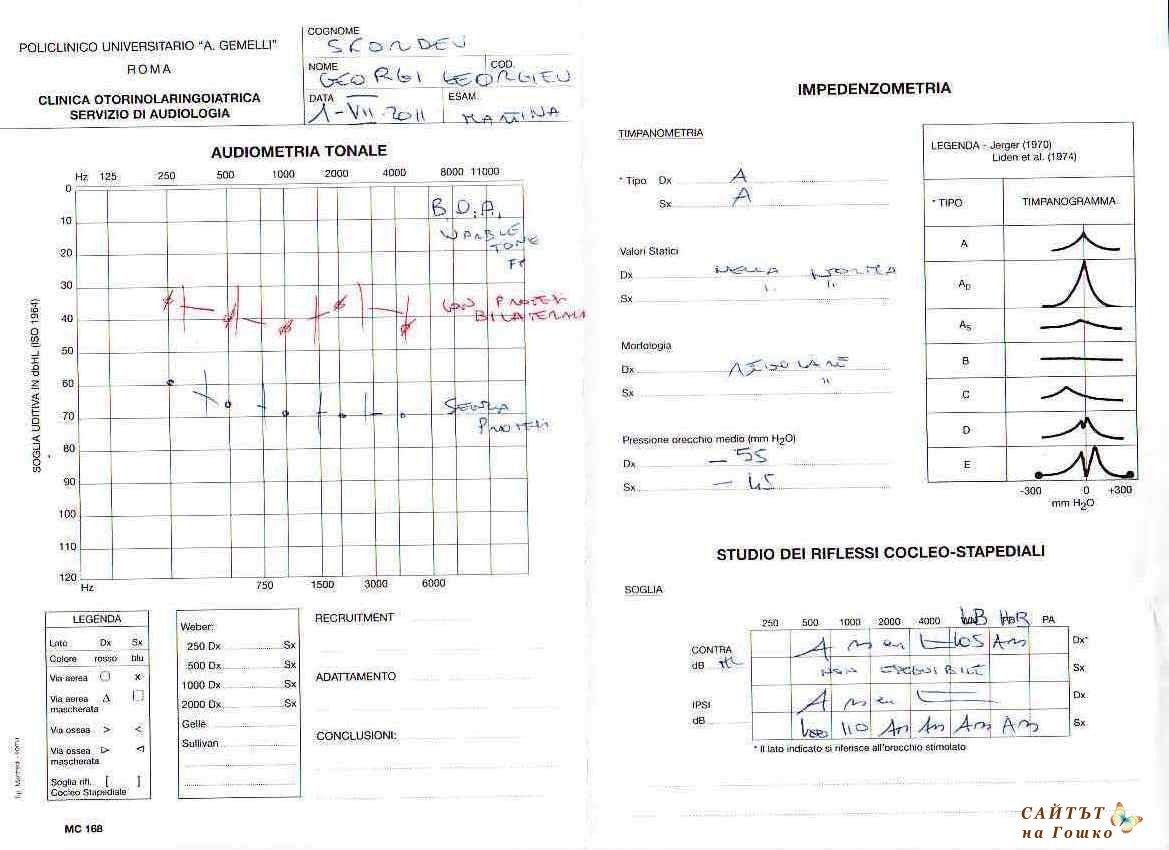 POLICLINICO UNIVERSITARIO "A. GEMELLI"
ROMA
CLINICA OTORINOLARINGOIATRICA
SERVIZIO DI AUDIOLOGIA
COGNOME
NOME
GEORGI GEORGIEV
COD.
DATA
1-VII-2011
ESAM.
AUDIOMETRIA TONALE
Hz 125 250 500 1000 2000 4000 8000 11000
0
10
20
30
40
50
60
70
80
90
100
110
120
SOGLIA UDITIVA IN dbHL (ISO 1964)
WARBLE
TONE
CON PROTESI
BILATERALI
SENZA
PROTESI
Hz 750 1500 3000 6000
LEGENDA
Lato Dx Sx
Colore rosso blu
Via aerea O x
Via aerea Δ □
mascherata
Via ossea > <
Via ossea ▷ ◁
mascherata
Soglia rifl. [ ]
Cocleo Stapediale
MC 168
Weber:
250 Dx Sx
500 Dx Sx
1000 Dx Sx
2000 Dx Sx
Gellé
Sullivan
RECRUITMENT
ADATTAMENTO
CONCLUSIONI:
IMPEDENZOMETRIA
TIMPANOMETRIA
* Tipo Dx A
Sx A
Valori Statici
Dx NELLA NORMA
Sx " "
Morfologia
Dx REGOLARE
Sx "
Pressione orecchio medio (mm H2O)
Dx - 55
Sx - 45
LEGENDA - Jerger (1970)
Liden et al. (1974)
* TIPO TIMPANOGRAMMA
A
AD
AS
B
C
D
E
-300 0 +300
mm H2O
STUDIO DEI RIFLESSI COCLEO-STAPEDIALI
SOGLIA
250 500 1000 2000 4000 PA
CONTRA
dB
Dx*
NON ESEGUIBILE Sx
IPSI
dB
Dx
100 110 Sx
* Il lato indicato si riferisce all'orecchio stimolato
САЙТЪТ
на Гошко